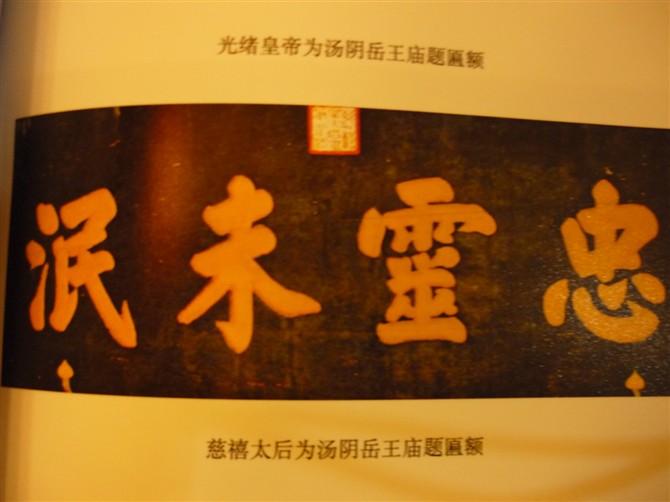 光绪皇帝为汤阴岳王庙题匾额
忠靈未泯
慈禧太后为汤阴岳王庙题匾额